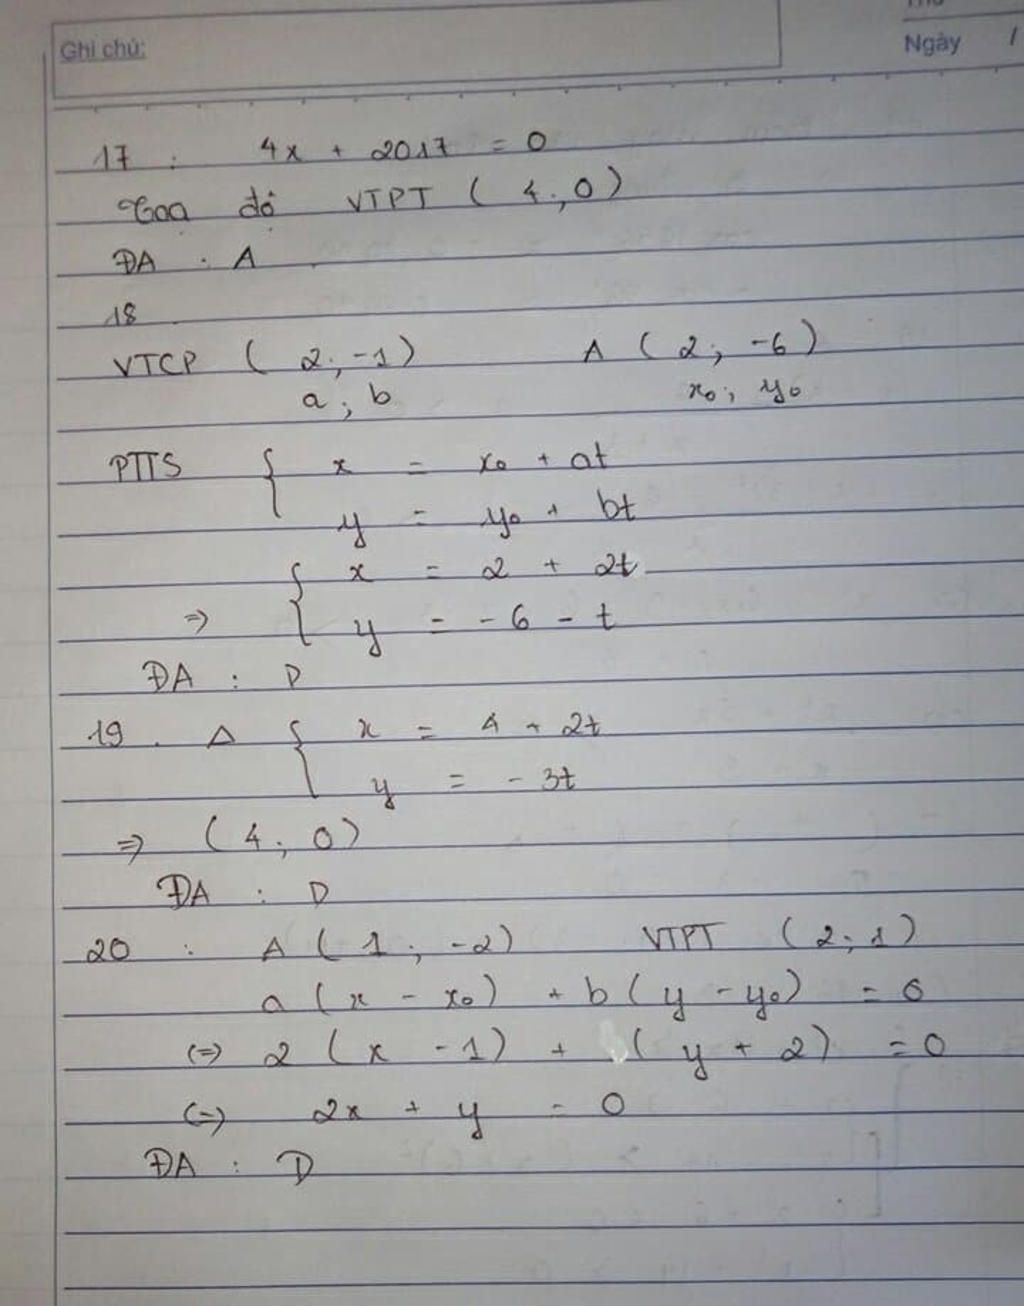 Ghi chú:
Ngày /
17 : 4x + 2017 = 0
Toạ độ VTPT ( 4 ; 0 )
ĐA : A
18
VTCP ( 2 ; -1 ) A ( 2 ; -6 )
a ; b x₀ ; y₀
PTTS { x = x₀ + at
y = y₀ + bt
{ x = 2 + 2t
=> y = - 6 - t
ĐA : D
19 . Δ { x = 4 + 2t
y = - 3t
=> ( 4 ; 0 )
ĐA : D
20 : A ( 1 ; -2 ) VTPT ( 2 ; 1 )
a ( x - x₀ ) + b ( y - y₀ ) = 0
(=) 2 ( x - 1 ) + ( y + 2 ) = 0
(=) 2x + y = 0
ĐA : D